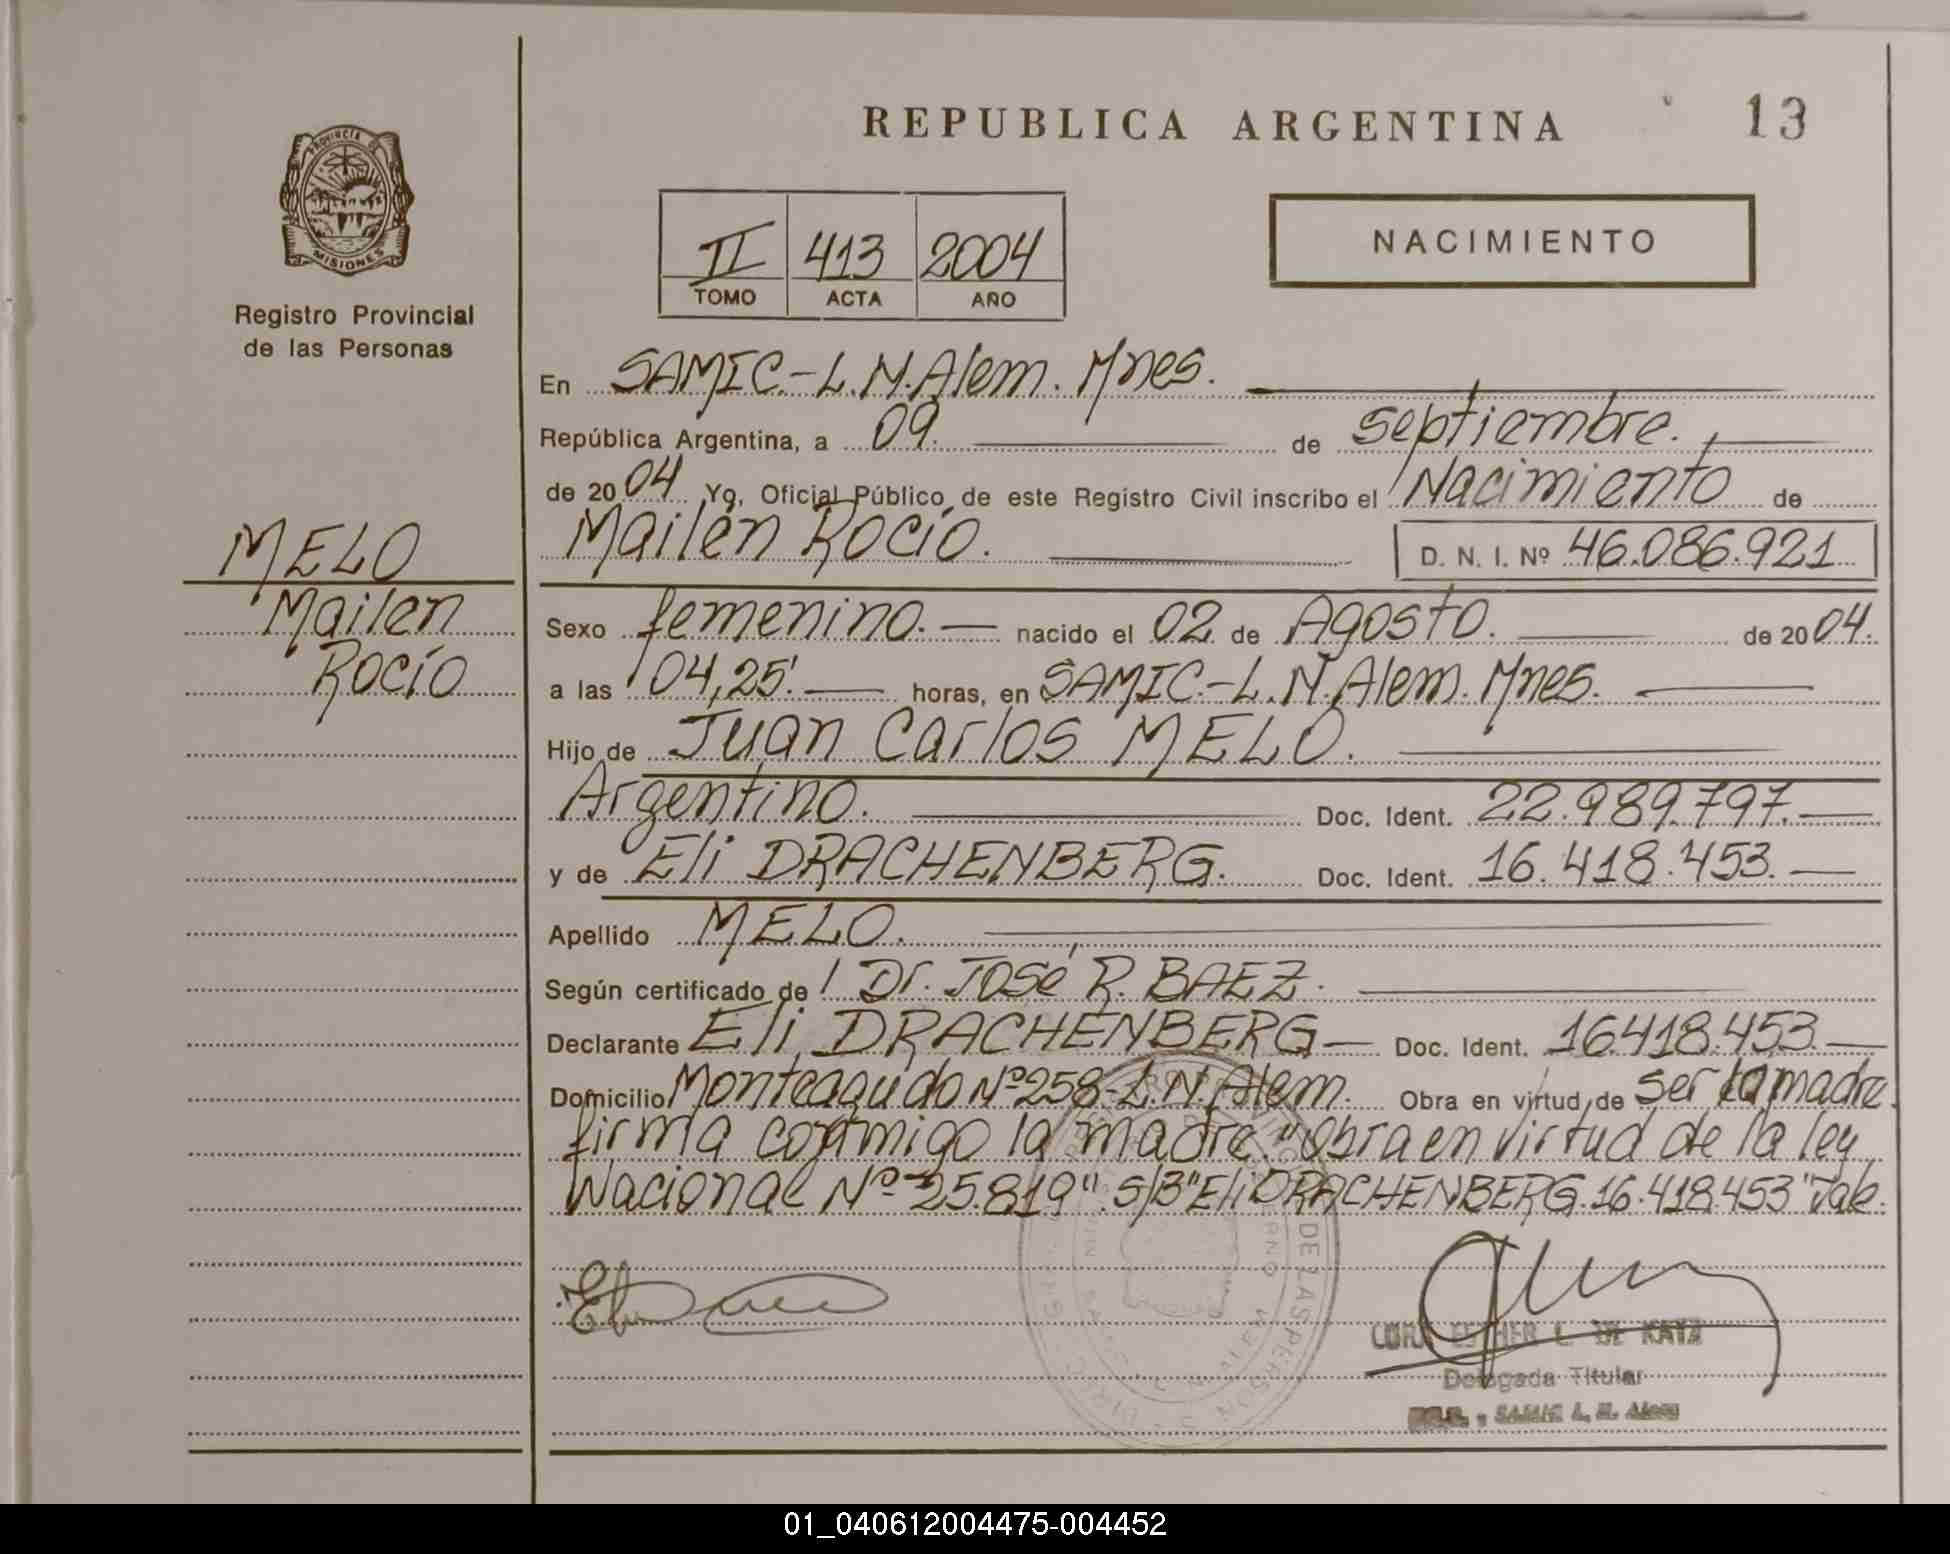 REPUBLICA ARGENTINA
13
PROVINCIA DE
MISIONES
Registro Provincial
de las Personas
II 413 2004
TOMO ACTA AÑO
NACIMIENTO
En SAMIC.-L.N.Alem. Mnes.
República Argentina, a 09. de septiembre.
de 2004 Yo, Oficial Público de este Registro Civil inscribo el Nacimiento de
Mailén Rocío. D. N. I. Nº 46.086.921
MELO
Mailén
Rocío
Sexo femenino. — nacido el 02 de Agosto. de 2004.
a las 04,25'. — horas, en SAMIC.-L.N.Alem. Mnes.
Hijo de Juan Carlos MELO.
Argentino. Doc. Ident. 22.989.797.—
y de Eli DRACHENBERG. Doc. Ident. 16.418.453.—
Apellido MELO.
Según certificado de Dr. José R. BAEZ.
Declarante Eli DRACHENBERG— Doc. Ident. 16.418.453.—
Domicilio Monteagudo Nº258-L.N.Alem. Obra en virtud de ser la madre
firma conmigo la madre. "Obra en virtud de la ley
Nacional Nº 25.819". S/B "Eli DRACHENBERG.16.418.453" Vale.
ESTHER L. DE KATZ
Delegada Titular
SAMIC L. N. Alem
01_040612004475-004452